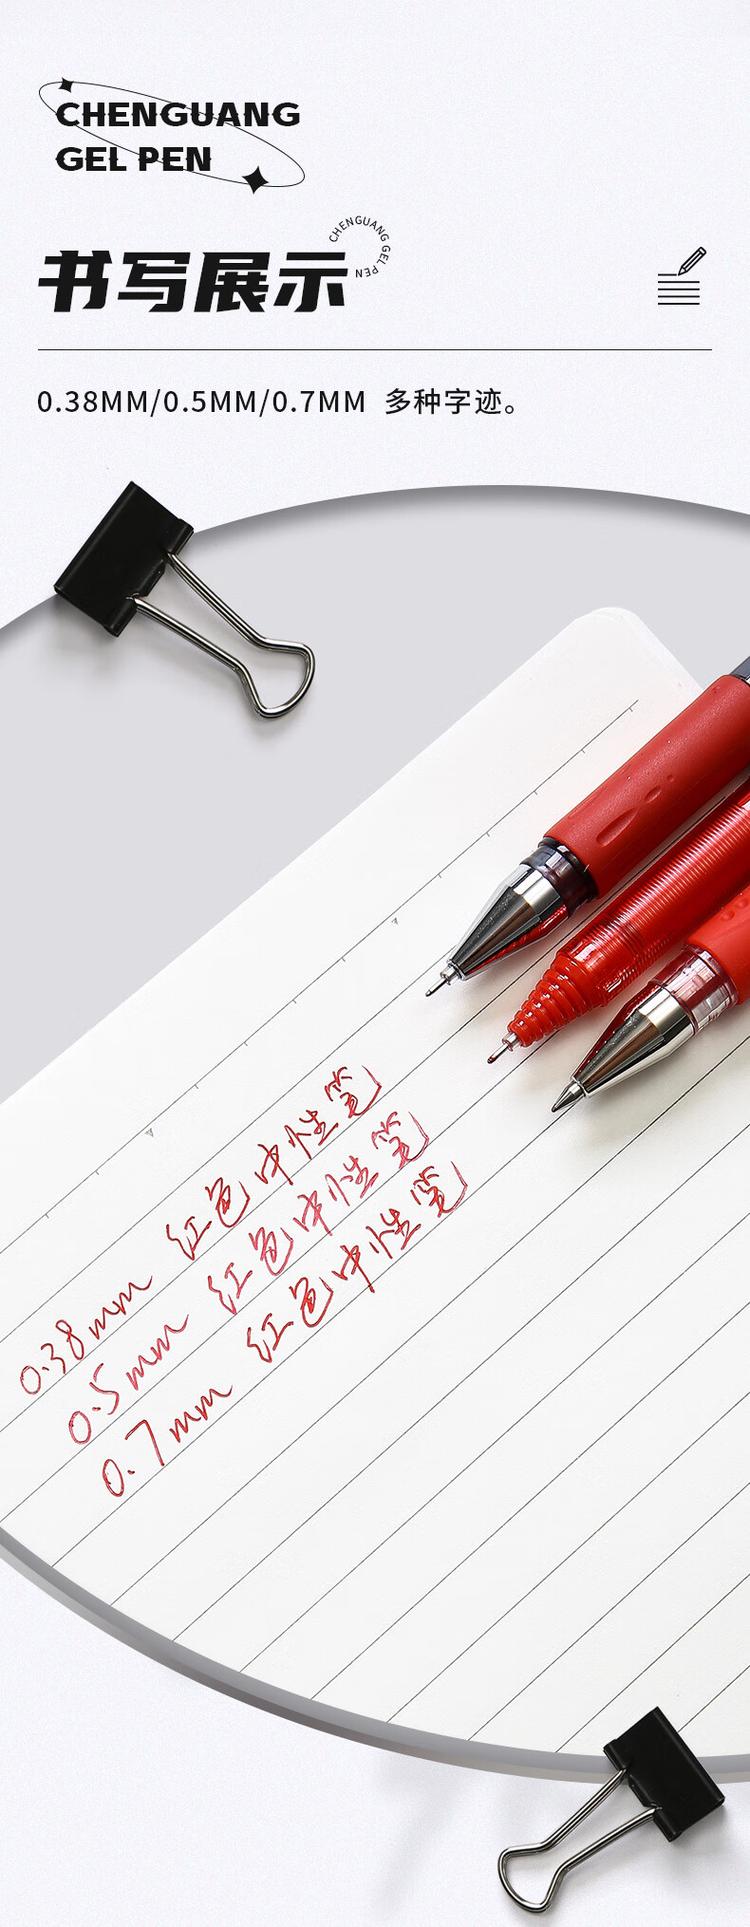 CHENGUANG
GEL PEN
书写展示
CHENGUANG GEL PEN
0.38MM/0.5MM/0.7MM 多种字迹。
0.38mm 红色中性笔
0.5mm 红色中性笔
0.7mm 红色中性笔